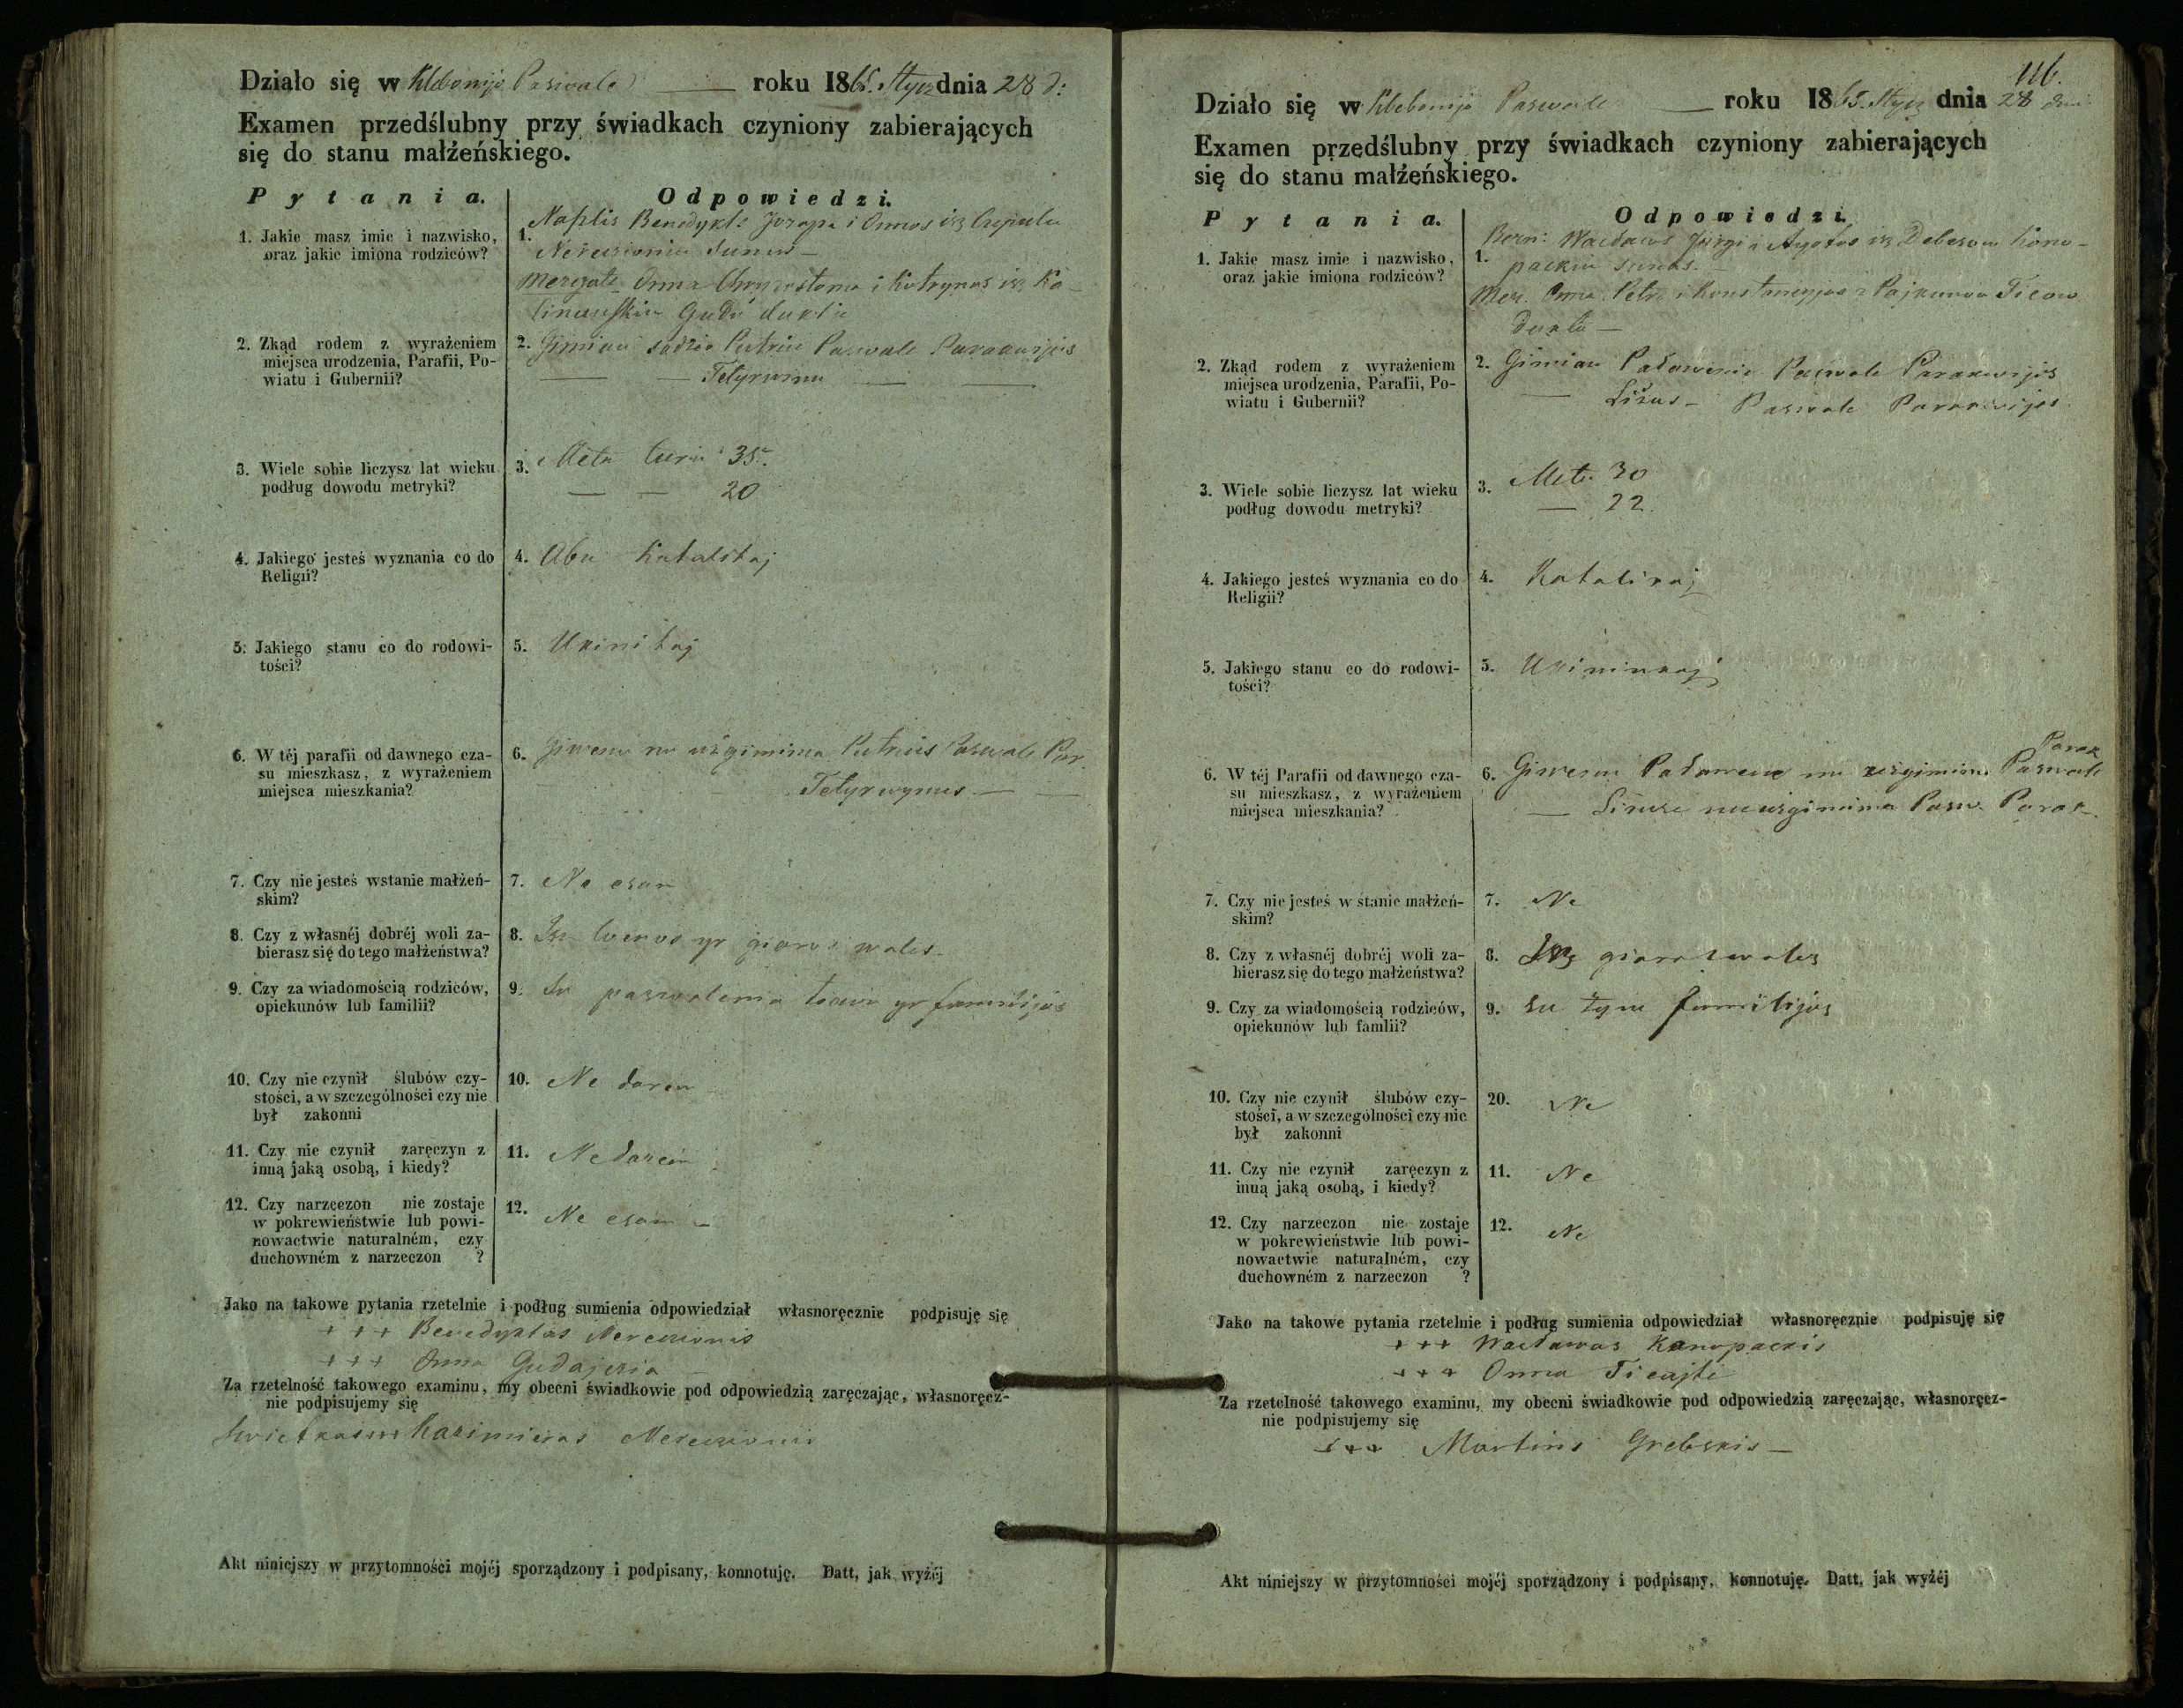 Działo się w Klebonijo Paswale roku 1865. Stycz dnia 28 d:
Examen przedślubny przy świadkach czyniony zabierających
się do stanu małżeńskiego.
Pytania. Odpowiedzi.
1. Jakie masz imie i nazwisko,
oraz jakie imiona rodziców?
1. Naszlis Benedykts Jozapa i Onnos isz
sunus
Mergate Onna i Kotrynos isz Ka-
linauskiu Gudu dukte
2. Zkąd rodem z wyrażeniem
miejsca urodzenia, Parafii, Po-
wiatu i Gubernii?
2. Gimiau Paswale Parakwijos
— — Tetyrwinu — —
3. Wiele sobie liczysz lat wieku
podług dowodu metryki?
3. Metu turiu 35.
— — 20
4. Jakiego jesteś wyznania co do
Religii?
4. Abu
5. Jakiego stanu co do rodowi-
tości?
5.
6. W téj parafii od dawnego cza-
su mieszkasz, z wyrażeniem
miejsca mieszkania?
6. Giwenu nu użgimima Paswale Par.
Tetyrwynus — —
7. Czy nie jesteś wstanie małżeń-
skim?
7. Ne esam
8. Czy z własnéj dobréj woli za-
bierasz się do tego małżeństwa?
8. Isz yr gioros wales.
9. Czy za wiadomością rodziców,
opiekunów lub familii?
9. Su yr familijos
10. Czy nie czynił ślubów czy-
stości, a w szczególności czy nie
był zakonni
10. Ne darem
11. Czy nie czynił zaręczyn z
inną jaką osobą, i kiedy?
11. Ne darem
12. Czy narzeczon nie zostaje
w pokrewieństwie lub powi-
nowactwie naturalném, czy
duchowném z narzeczon ?
12. Ne esam —
Jako na takowe pytania rzetelnie i podług sumienia odpowiedział własnoręcznie podpisuję się
+ + + Benedyktas Nereczionis
+ + + Onna Gudajczia
Za rzetelność takowego examinu, my obecni świadkowie pod odpowiedzią zaręczając, własnoręcz-
nie podpisujemy się
Kazimieras Nereczionis
Akt niniejszy w przytomności mojéj sporządzony i podpisany, konnotuję. Datt, jak wyżéj
116.
Działo się w Klebonijo Paswale — roku 1865. Stycz dnia 28 dni
Examen przedślubny przy świadkach czyniony zabierających
się do stanu małżeńskiego.
Pytania. Odpowiedzi.
1. Jakie masz imie i nazwisko,
oraz jakie imiona rodziców?
1. Bern: Wacławs Jurgia i Agotos isz Kono-
packiu sunus. —
Mer. Onna Petra i Konstancyjos
dukte —
2. Zkąd rodem z wyrażeniem
miejsca urodzenia, Parafii, Po-
wiatu i Gubernii?
2. Gimiau Paswale Parakwijos
— Paswale Parakwijos
3. Wiele sobie liczysz lat wieku
podług dowodu metryki?
3. Metu 30
— 22
4. Jakiego jesteś wyznania co do
Religii?
4. Katalikaj
5. Jakiego stanu co do rodowi-
tości?
5. Ukininkaj
6. W téj Parafii od dawnego cza-
su mieszkasz, z wyrażeniem
miejsca mieszkania?
6. Giwenu nu użgimima Paswale Parak
— nu użgimima Pasw. Parak.
7. Czy nie jesteś w stanie małżeń-
skim?
7. Ne
8. Czy z własnéj dobréj woli za-
bierasz się do tego małżeństwa?
8. Isz gioros wales
9. Czy za wiadomością rodziców,
opiekunów lub famlii?
9. Su żyne familijos
10. Czy nie czynił ślubów czy-
stości, a w szczególności czy nie
był zakonni
20. Ne
11. Czy nie czynił zaręczyn z
inuą jaką osobą, i kiedy?
11. Ne
12. Czy narzeczon nie zostaje
w pokrewieństwie lub powi-
nowactwie naturalném, czy
duchowném z narzeczon ?
12. Ne
Jako na takowe pytania rzetelnie i podług sumienia odpowiedział własnoręcznie podpisuję się
+ + + Wacławas Kanopackis
+ + + Onna Ticajte
Za rzetelność takowego examinu, my obecni świadkowie pod odpowiedzią zaręczając, własnoręcz-
nie podpisujemy się
+ + + Martins Grebskis —
Akt niniejszy w przytomności mojéj sporządzony i podpisany, konnotuję. Datt, jak wyżéj